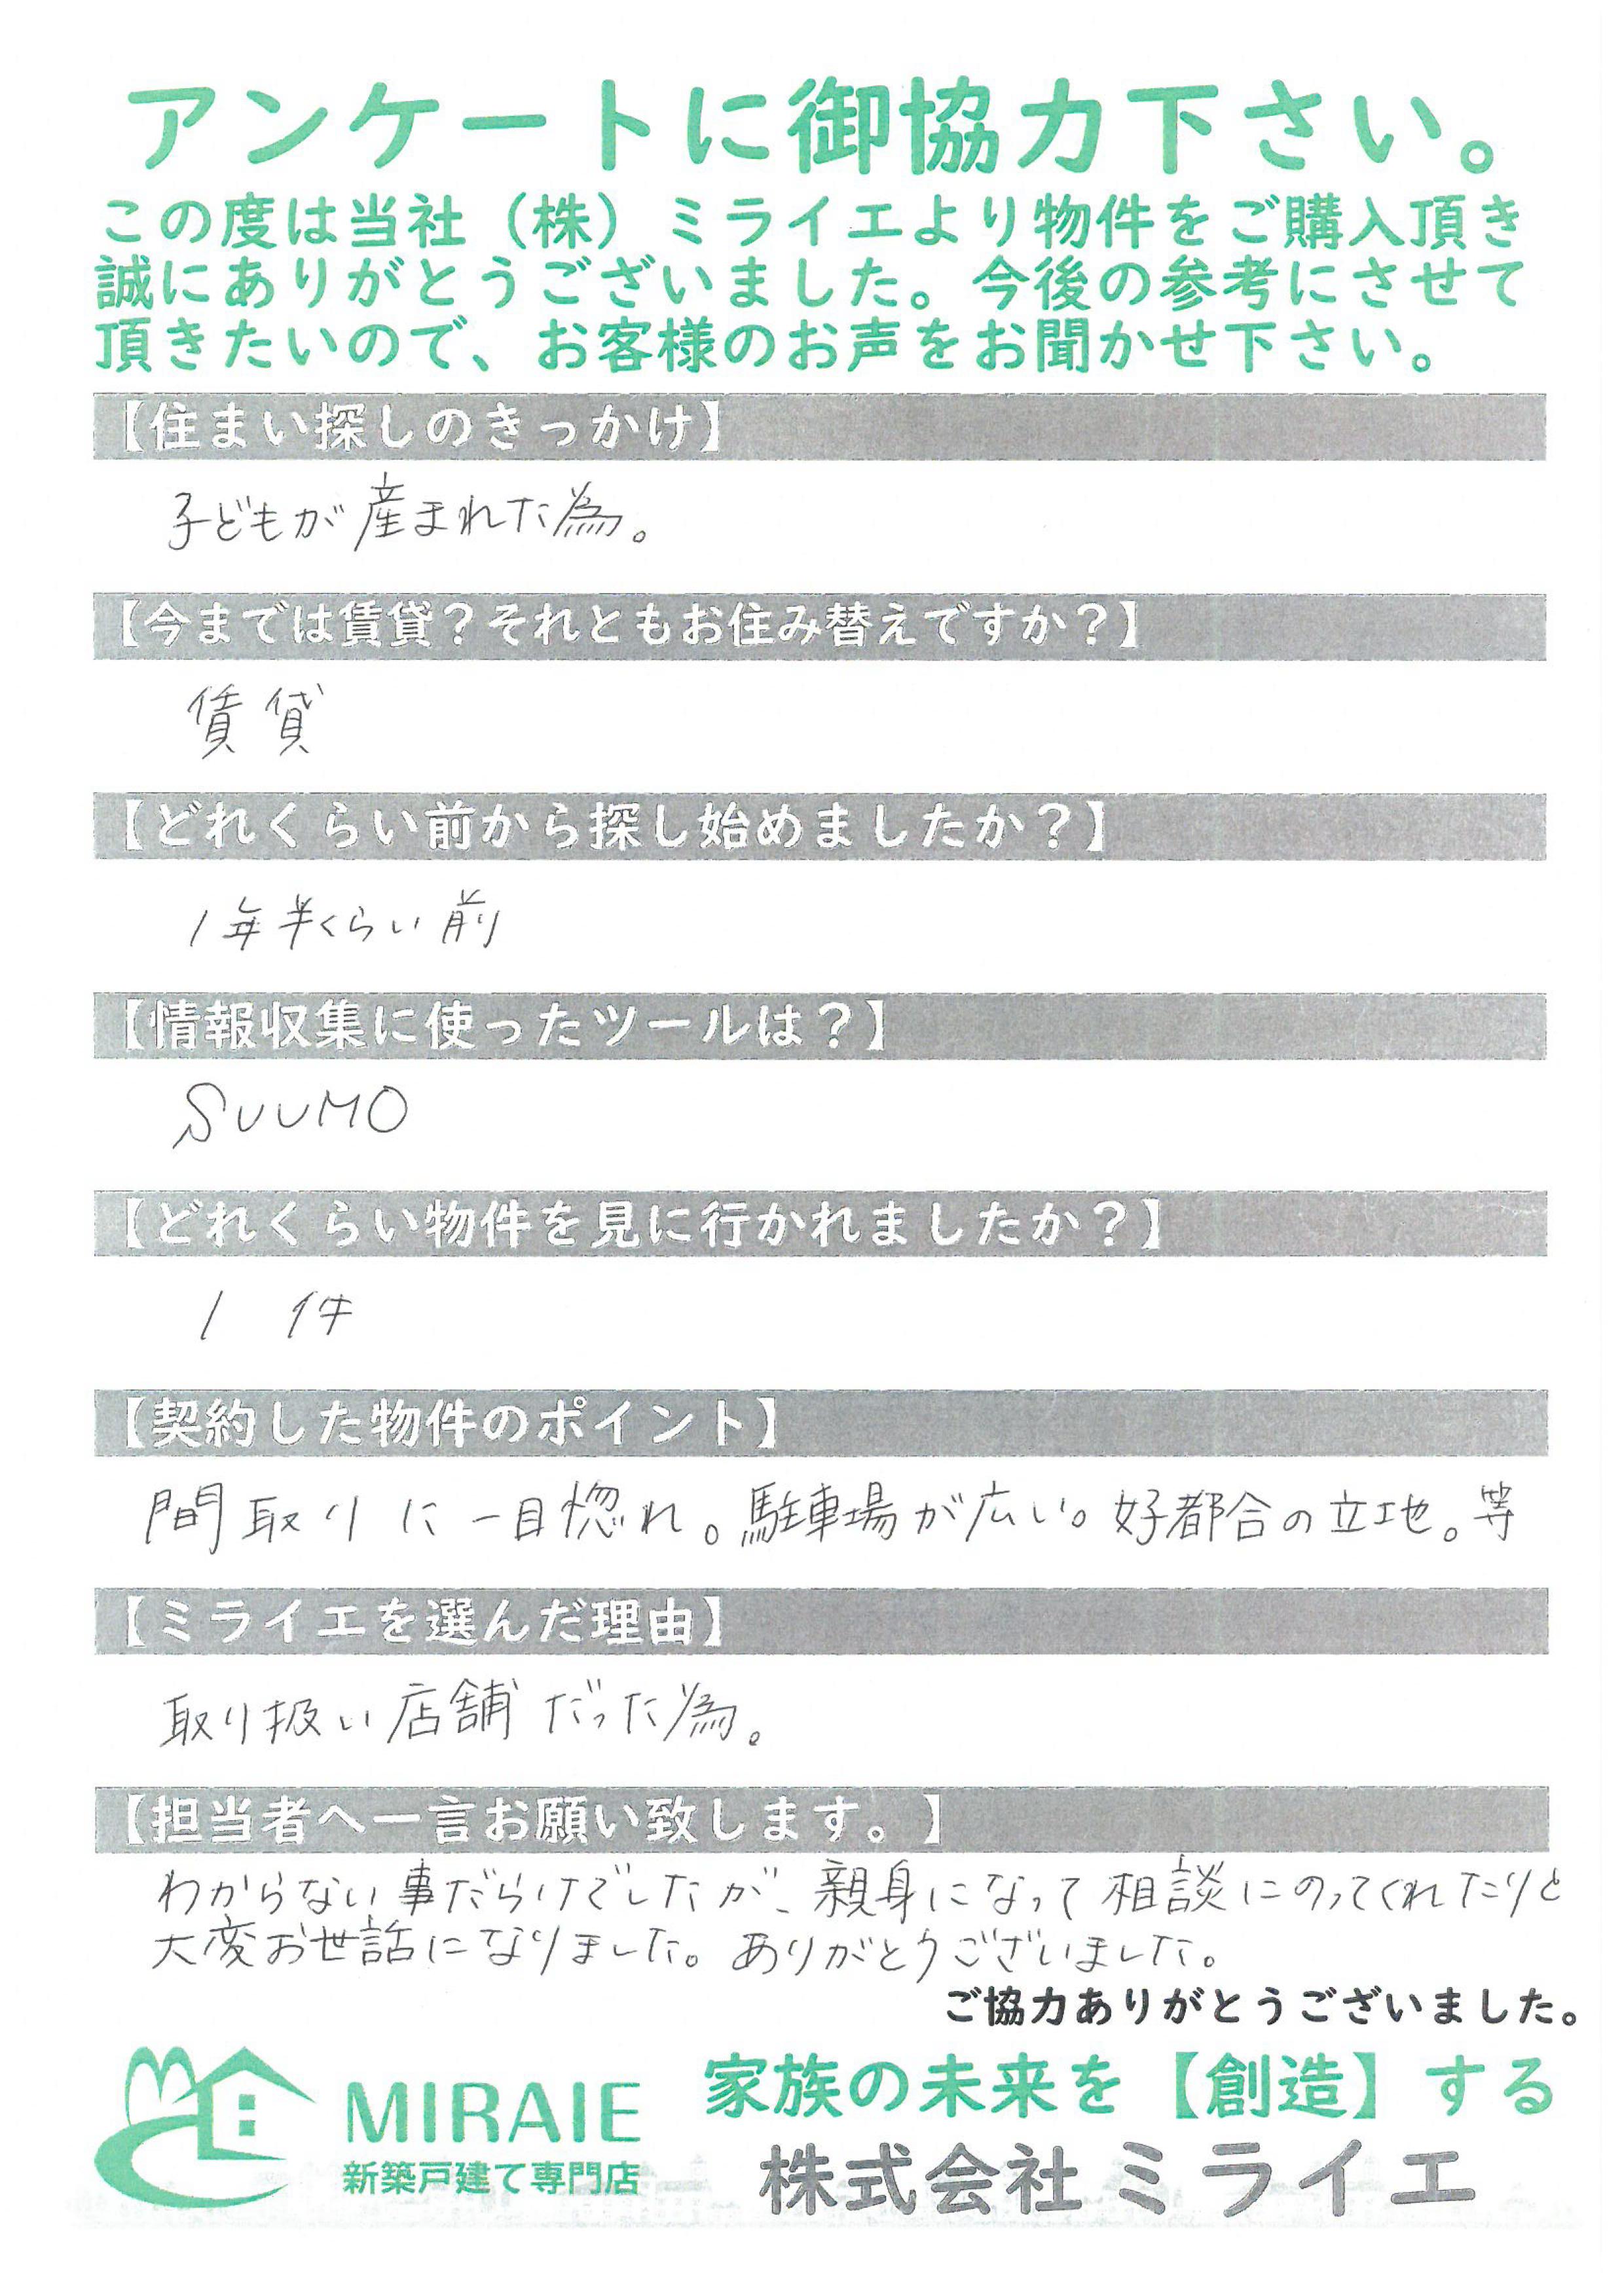 アンケートに御協力下さい。
この度は当社（株）ミライエより物件をご購入頂き
誠にありがとうございました。今後の参考にさせて
頂きたいので、お客様のお声をお聞かせ下さい。
【住まい探しのきっかけ】
子どもが産まれた為。
【今までは賃貸？それともお住み替えですか？】
賃貸
【どれくらい前から探し始めましたか？】
1年半くらい前
【情報収集に使ったツールは？】
SUUMO
【どれくらい物件を見に行かれましたか？】
1 件
【契約した物件のポイント】
間取りに一目惚れ。駐車場が広い。好都合の立地。等
【ミライエを選んだ理由】
取り扱い店舗だった為。
【担当者へ一言お願い致します。】
わからない事だらけでしたが、親身になって相談にのってくれたりと
大変お世話になりました。ありがとうございました。
ご協力ありがとうございました。
MIRAIE
新築戸建て専門店
家族の未来を【創造】する
株式会社ミライエ